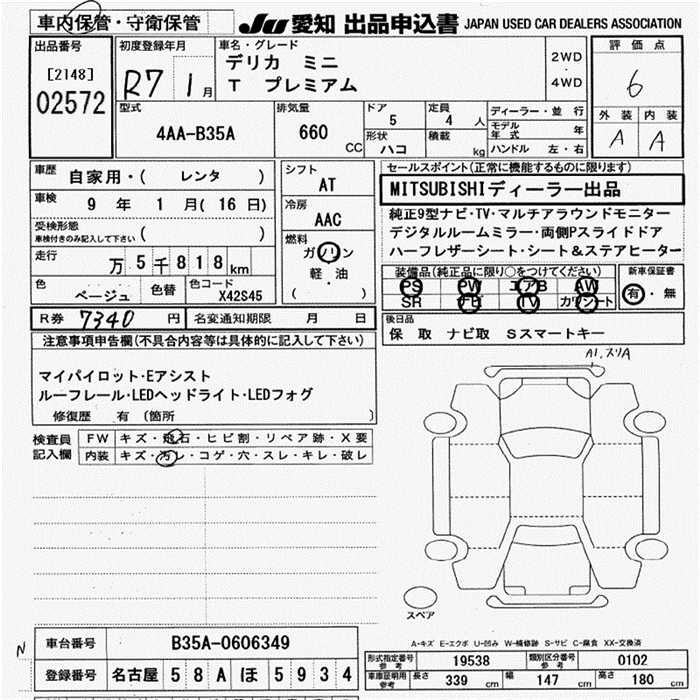 車内保管・守衛保管 JU 愛知 出品申込書 JAPAN USED CAR DEALERS ASSOCIATION
出品番号
[2148]
02572
初度登録年月
R7 1月
車名・グレード
デリカ ミニ
T プレミアム
2WD
・
4WD
評価点
6
外装 内装
A A
型式
4AA-B35A
排気量
660 CC
ドア
5
定員
4 人
形状
ハコ
積載
kg
ディーラー・並行
モデル年式 年
ハンドル 左・右
車歴
自家用・( レンタ )
車検
9 年 1 月( 16 日)
受検形態
車検付きのみ記入して下さい ( )
走行
万 5 千 8 1 8 km
色
ベージュ
色替
色コード
X42S45
シフト
AT
冷房
AAC
燃料
ガソリン
・
軽・油
( )
セールスポイント(正常に機能するものに限ります)
MITSUBISHIディーラー出品
純正9型ナビ・TV・マルチアラウンドモニター
デジタルルームミラー・両側Pスライドドア
ハーフレザーシート・シート&ステアヒーター
装備品(純正品に限り○をつけてください)
PS PW エアB AW
SR ナビ TV カワシート
新車保証書
有・無
R券 7340 円 名変通知期限 月 日
後日品
保 取 ナビ取 Sスマートキー
注意事項申告欄(不具合内容等は具体的に記入して下さい)
マイパイロット・Eアシスト
ルーフレール・LEDヘッドライト・LEDフォグ
修復歴 有 〔箇所 〕
検査員記入欄
FW キズ・飛石・ヒビ割・リペア跡・X要
内装 キズ・汚レ・コゲ・穴・スレ・キレ・破レ
A1.スリA
スペア
A-キズ E-エクボ U-凹み W-補修跡 S-サビ C-腐食 XX-交換済
N
車台番号 B35A-0606349
登録番号 名古屋 5 8 A ほ 5 9 3 4
形式指定番号参考 19538 類別区分番号参考 0102
車庫証明用参考 長さ 339 cm 幅 147 cm 高さ 180 cm